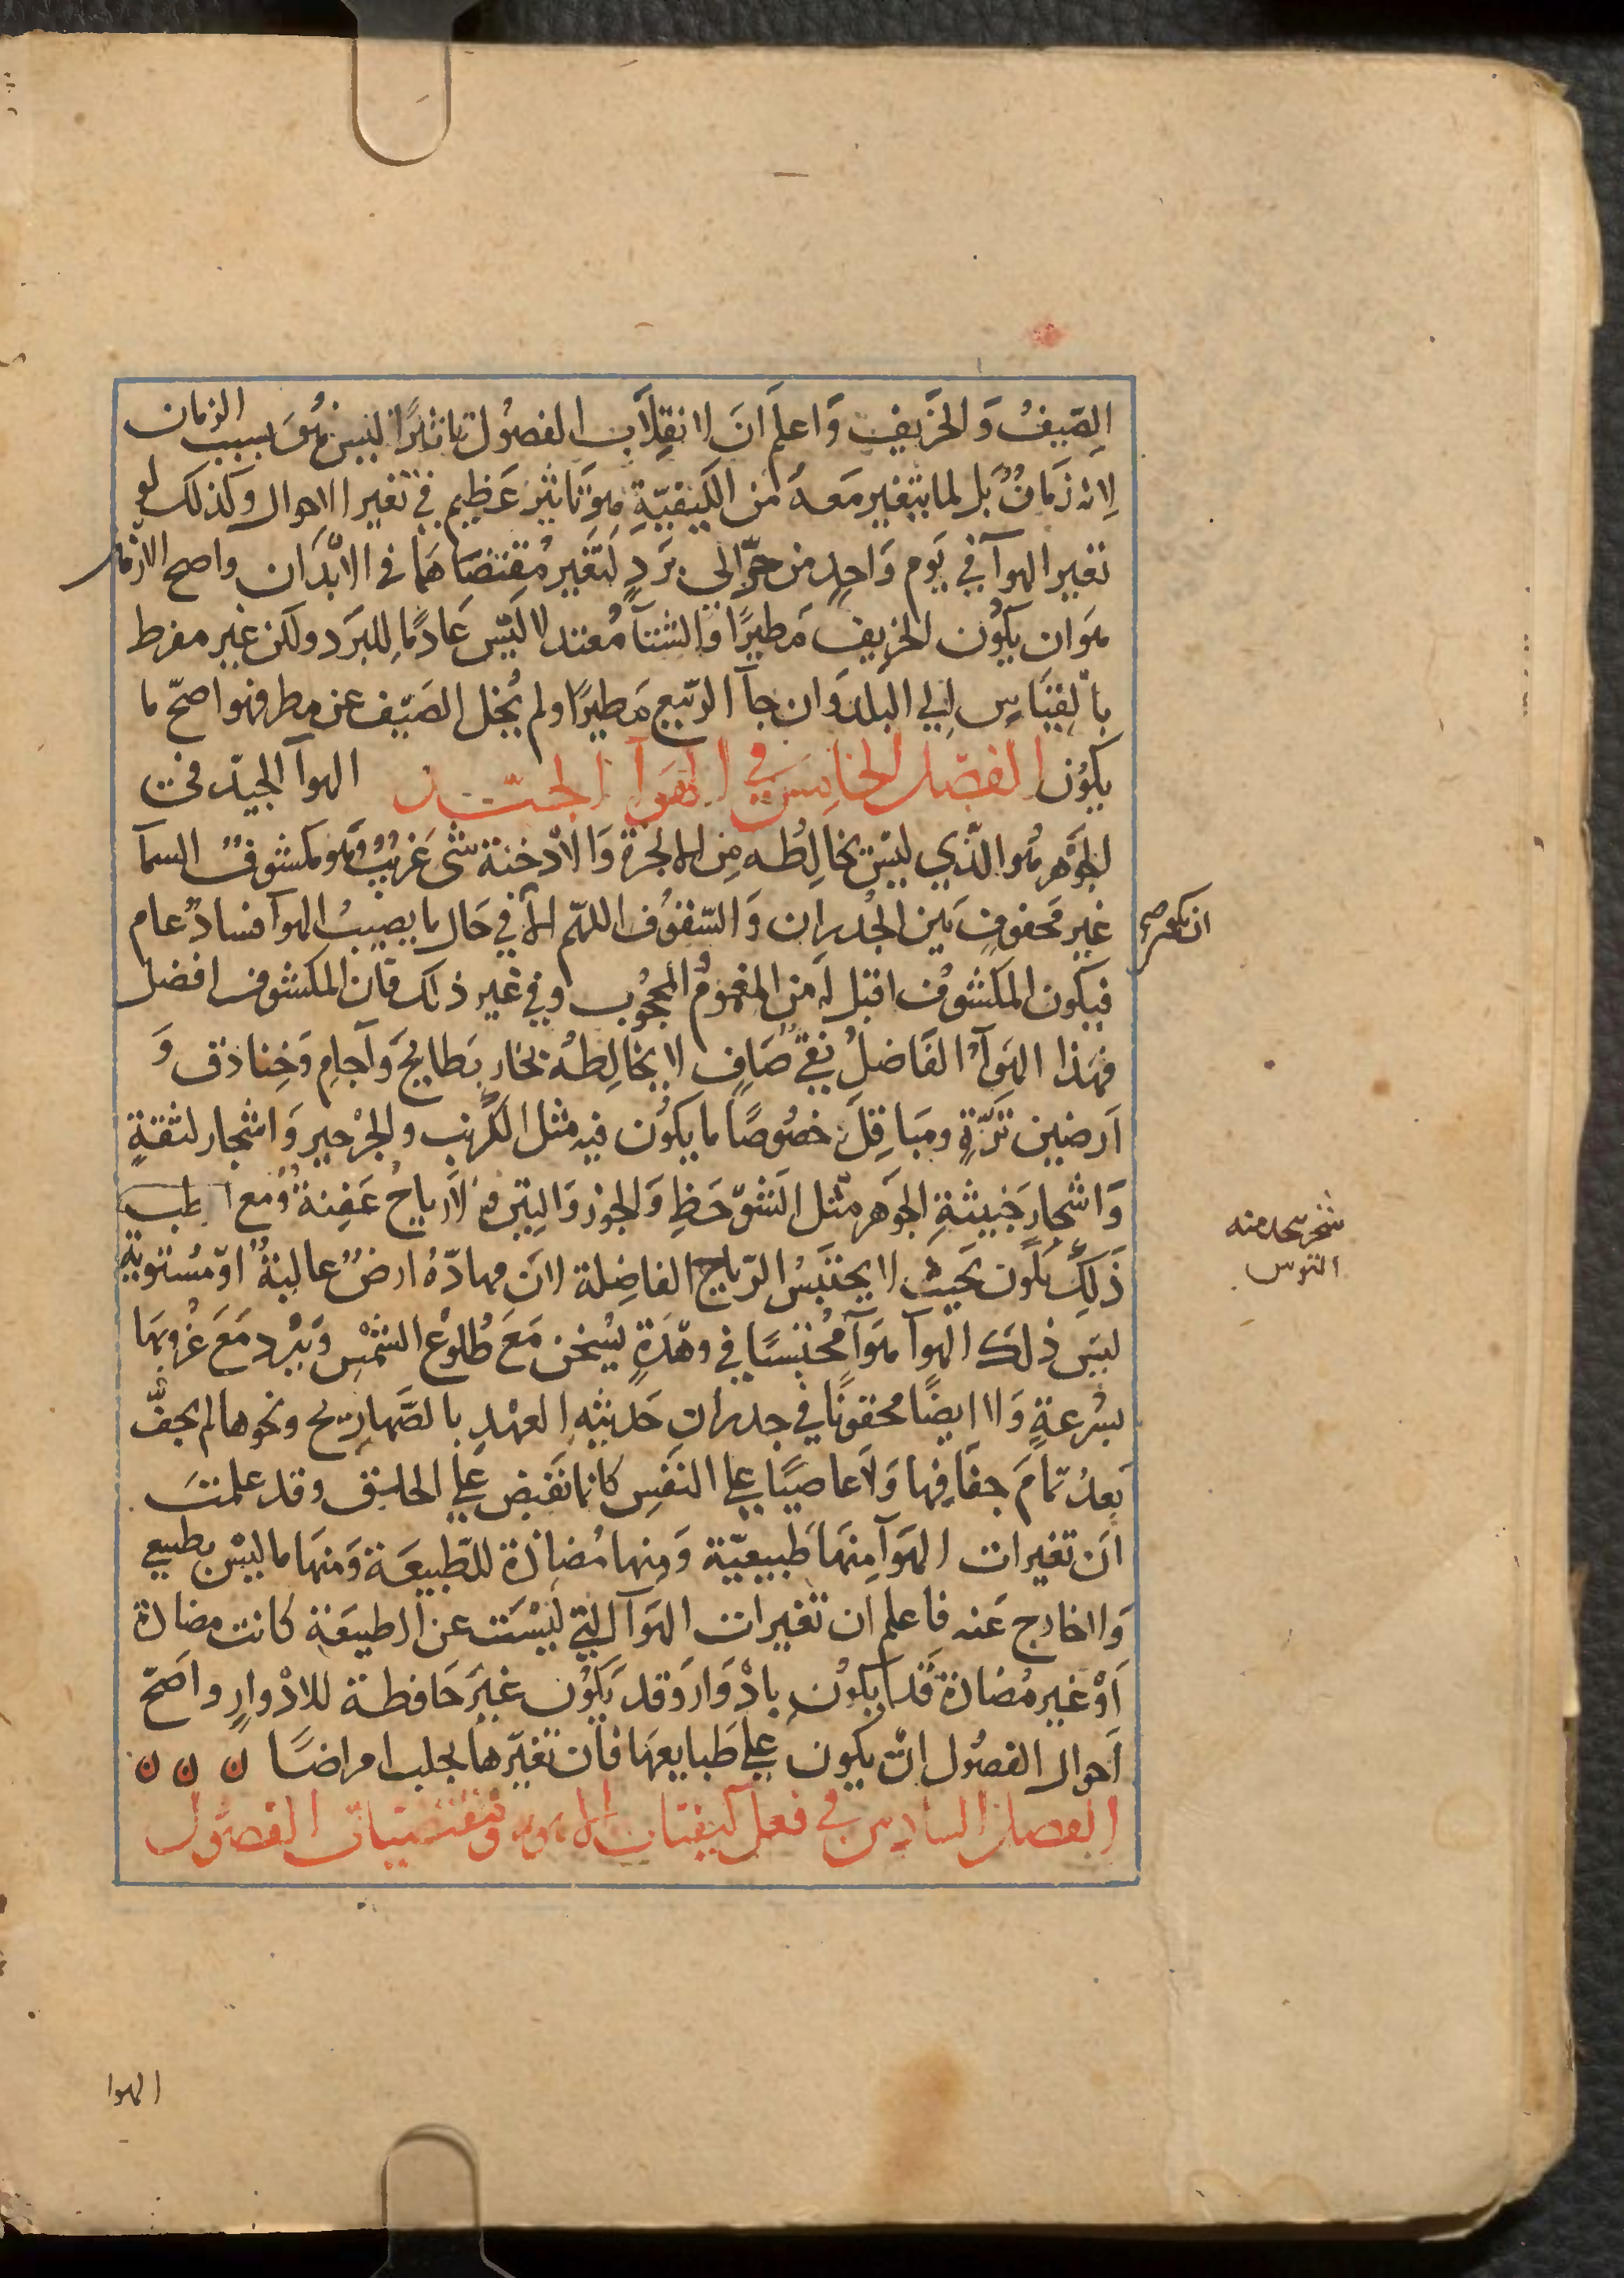 الصّيفُ وَالخَريفِ وَاعلم اَنَ لانقلَاب الفصُول تاثيرًا ليسَ هُوَ بسبب الزمان
لِانه زَمَانٌ بَل لما يتغير مَعهُ من الكيفيّةِ هوَ تاثير عَظيم في تغير الاحوال وكذلك لو
تغير الهوآ في يَوم وَاحِدٍ من حرّ الى برَدٍ لتغَير مُقتضَاهمَا في الابدَان واصح الازمان
هوَ ان يكوُن الخريف مَطيرًا وَالشتآ مُعتدلا ليَس عَادمًا للبرَد ولكن غير مفرط
بالقيَاس الى البلد وَان جآ الربيع مَطيرًا ولم يُخل الصَيف عن مطر فهو اصحّ ما
يكوُن الفصَل الخامِسَ في الهَوآ الجيّد الهوآ الجيّد في
الجوَهر هُو الذّي ليسَ يخالِطُه مِن الابخرة وَالاَدخنة شئ غَريبٌ وَهو مكشوفٌ السمآ
غير مَحقوف بَين الجُدران وَالسّقوُف اللهّم الاّ في حَال ما يصيبُ الهوآ فسادٌ عام
فيكون المكشوُف اقبل لهَ من المغموُم المحجوُب وفي غير ذلك فان المكشوف افضل
فهَذا الهَوآ الفَاضلُ نقىٌ صَافٍ لا يخَالِطهُ بخار بَطايحَ وَآجام وَخِنادق وَ
اَرضين نَزّةٍ ومبَاقِلَ خصُوصًا ما يكوُن فيه مثل الكرُنب والجرْجير وَاشجار لثقةٍ
وَاشجار خَبيثَةِ الجَوهر مثل الشوّحَظِ وَالجوز وَالتِين وَ لاَرياحُ عَفِنةٌ وَمع
ذَلِكَ يكَون بحَيث لا يحتَبسُ الريّاح الفاضِلة لانَ مهابّهُ ارضٌ عاليةٌ اوّ مُسْتوية
ليسَ ذلكَ الهوآ هوَآ مُحتبسًا في وهْدَةٍ يسُخن مَعَ طُلوُع الشمْسِ وَيبرْد مَعَ غرُوبهَا
بسُرعَةٍ وَلا ايضًا محقونًا في جدران حَديثه العهْدِ بالصَّهاريج ونحوها لم يجفّ
بَعدُ تمَامَ جفَافِها وَلاَعاصيًا على النَفَسِ كانما نقَبض على الحلق وقد علمتَ
انَ تغيرات الهَوآ منِهَا طَبيعيّة وَمِنها مُضادة للطّبيعَة وَمِنهَا ما ليْسَ بطبيعي
وَلا خارج عَنه فاعلم ان تغيرات الهَوآ التي ليْسَت عن الطبيعَة كانت مضادة
اَوْ غير مُضادة قَد يكوُن بادْوَار وَقد يَكوُن غيرَ حَافظة للادْوارِ واَصحّ
اَحوال الفصُول ان يكون على طَبايعهَا فان تغيّرها يجلب امراضًا ن ن ن
الفصل السادس في فعل كيفيات الاهوية وَمقتضيات الفصوُل
شجر يتخذ منه
القوس
الهوا